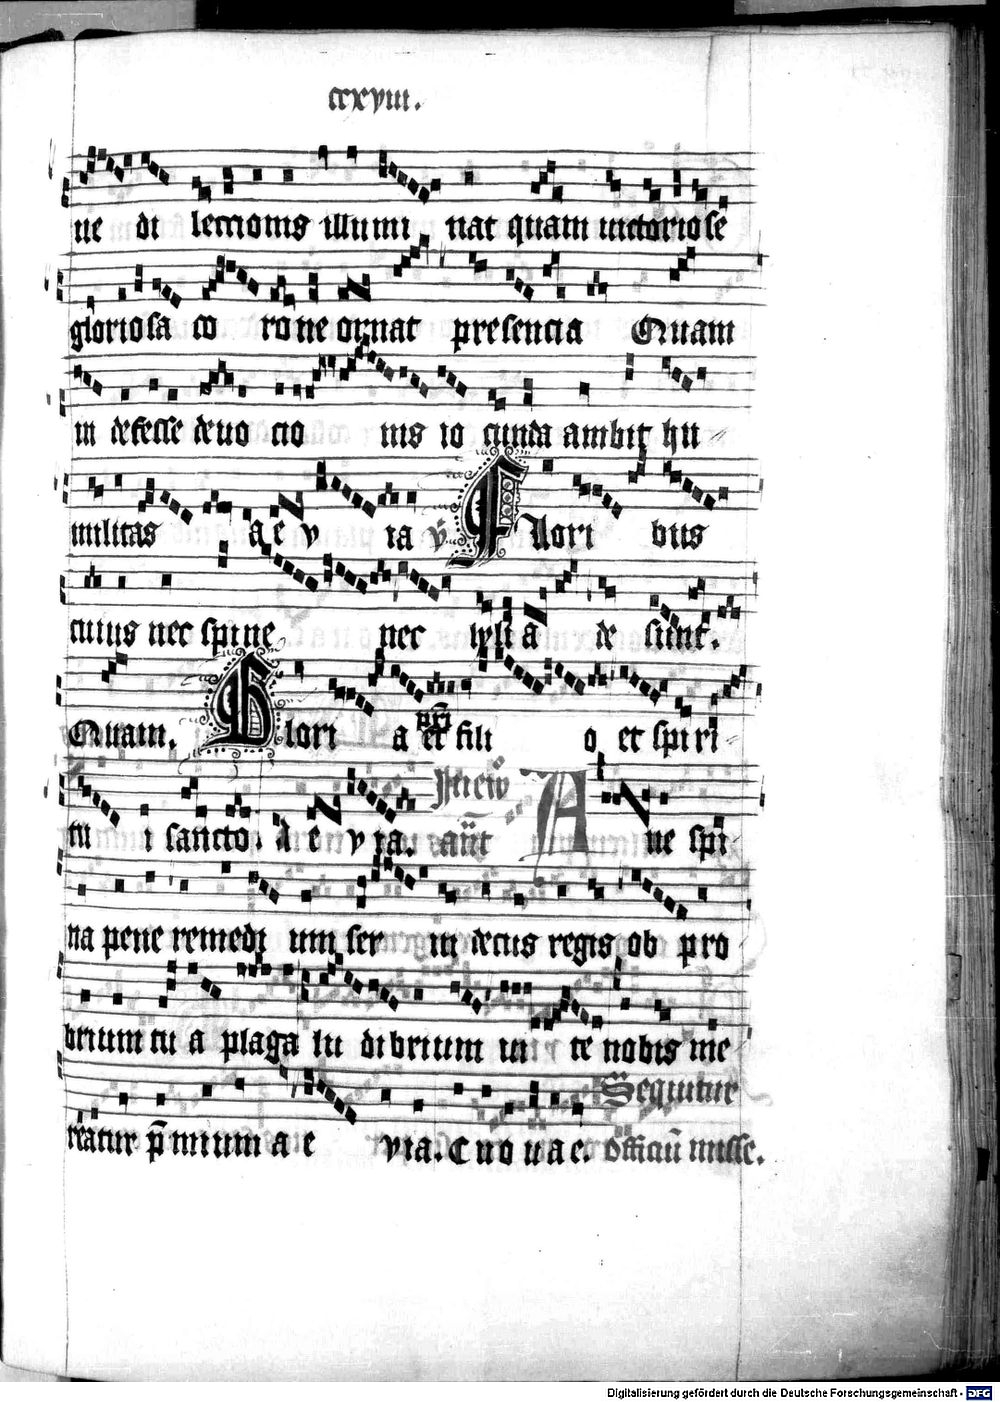 ccxviii.
ue di lectionis illumi nat quam uictoriose
gloriosa co rone ornat presencia Quam
in defesse deuo cio nis io cunda ambit hu
militas a e v ia v̄ Flori bus
cuius nec spine nec lylia de sunt.
Quam. Glori a pr̄i et fili o et spiri
tu i sancto. A e v ia. Aue spi
na pene remedi um ser ui decus regis ob pro
brium tu a plaga lu dibrium in te nobis me
Sequitur
reatur p̄ mium a e via. E u o u a e. officiū misse.
Digitalisierung gefördert durch die Deutsche Forschungsgemeinschaft - DFG